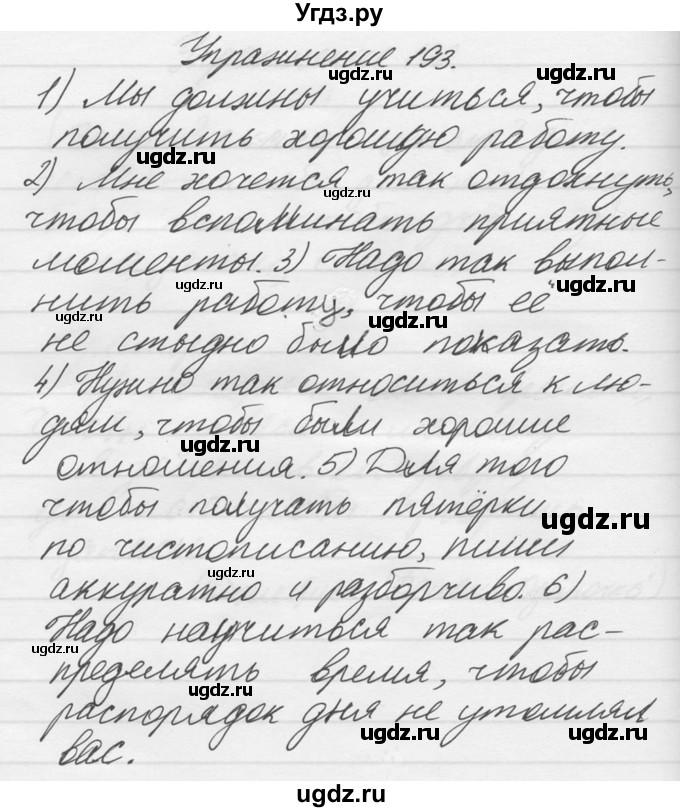 Угдз.ру
Упражнение 193.
1) Мы должны учиться, чтобы
получить хорошую работу.
2) Мне хочется так отдохнуть,
чтобы вспоминать приятные
моменты. 3) Надо так выпол-
нить работу, чтобы её
не стыдно было показать.
4) Нужно так относиться к лю-
дям, чтобы были хорошие
отношения. 5) Для того
чтобы получать пятёрки
по чистописанию, пиши
аккуратно и разборчиво. 6)
Надо научиться так рас-
пределять время, чтобы
распорядок дня не утомлял
вас.
ugdz.ru